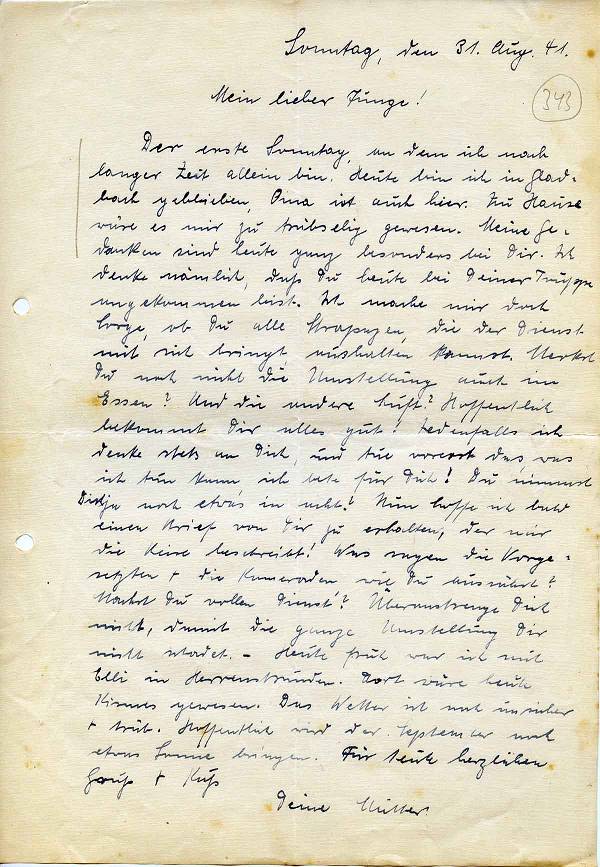 Sonntag, den 31. Aug. 41.
343
Mein lieber Junge!
Der erste Sonntag, an dem ich nach
langer Zeit allein bin. Heute bin ich in Glad-
bach geblieben, Oma ist auch hier. Zu Hause
wäre es mir zu trübselig gewesen. Meine Ge-
danken sind heute ganz besonders bei Dir. Ich
denke nämlich, daß Du heute bei Deiner Truppe
angekommen bist. Ich mache mir doch
Sorge, ob Du alle Strapazen, die der Dienst
mit sich bringt, aushalten kannst. Merkst
Du noch nicht die Umstellung auch im
Essen? Und die andere Luft? Hoffentlich
bekommt Dir alles gut! Jedenfalls ich
denke stets an Dich, und tue vorerst das, was
ich tun kann, ich bete für Dich! Du nimmst
Dich ja noch etwas in acht? Nun hoffe ich bald
einen Brief von Dir zu erhalten, der mir
die Reise beschreibt! Was sagen die Vorge-
setzten + die Kameraden wie Du aussiehst?
Machst Du vollen Dienst? Überanstrenge Dich
nicht, damit die ganze Umstellung Dir
nicht schadet. – Heute früh war ich mit
Elli in Herrenstrunden. Dort wäre heute
Kirmes gewesen. Das Wetter ist noch unsicher
+ trüb. Hoffentlich wird der September noch
etwas Sonne bringen. Für heute herzlichen
Gruß + Kuß
Deine Mutter.